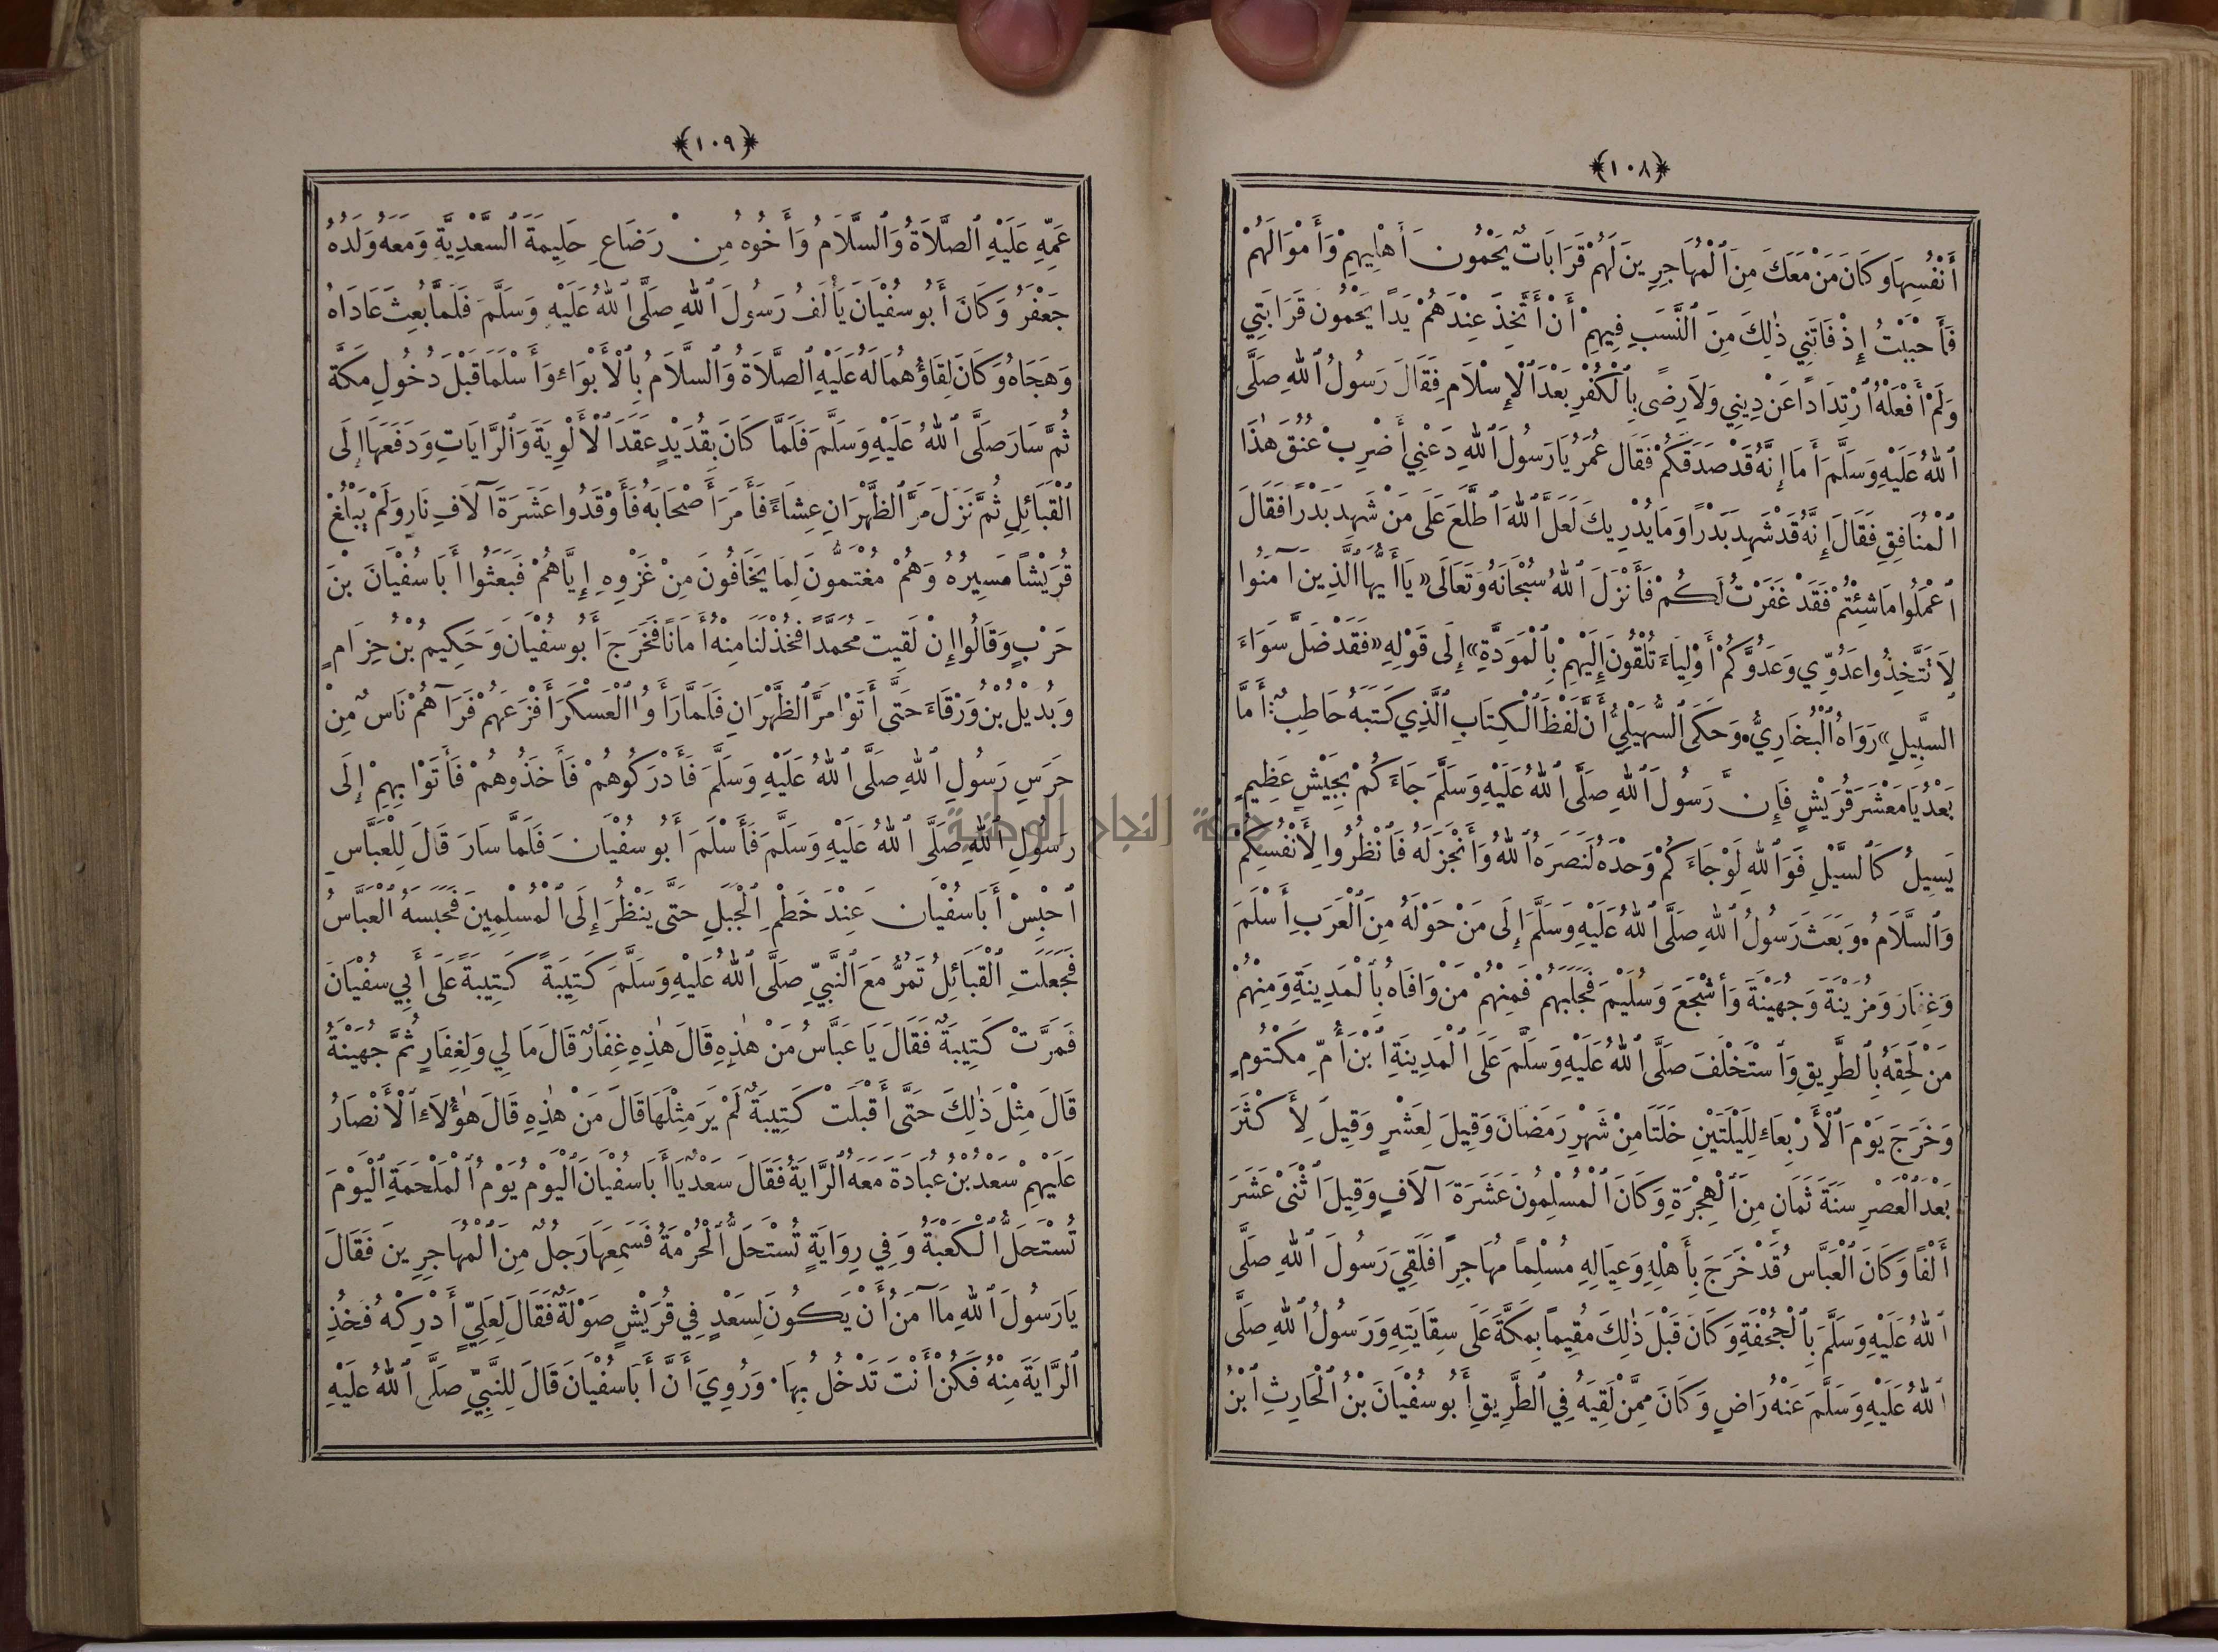 ﴿١٠٨﴾
أَنْفُسِهَا وَكَانَ مَنْ مَعَكَ مِنَ ٱلْمُهَاجِرِينَ لَهُمْ قَرَابَاتٌ يَحْمُونَ أَهْلِيهِمْ وَأَمْوَالَهُمْ
فَأَحْبَبْتُ إِذْ فَاتَنِي ذٰلِكَ مِنَ ٱلنَّسَبِ فِيهِمْ أَنْ أَتَّخِذَ عِنْدَهُمْ يَدًا يَحْمُونَ قَرَابَتِي
وَلَمْ أَفْعَلْهُ ٱرْتِدَادًا عَنْ دِينِي وَلَا رِضًى بِٱلْكُفْرِ بَعْدَ ٱلْإِسْلَامِ فَقَالَ رَسُولُ ٱللهِ صَلَّى
ٱللهُ عَلَيْهِ وَسَلَّمَ أَمَا إِنَّهُ قَدْ صَدَقَكُمْ فَقَالَ عُمَرُ يَا رَسُولَ ٱللهِ دَعْنِي أَضْرِبْ عُنُقَ هٰذَا
ٱلْمُنَافِقِ فَقَالَ إِنَّهُ قَدْ شَهِدَ بَدْرًا وَمَا يُدْرِيكَ لَعَلَّ ٱللهَ ٱطَّلَعَ عَلَى مَنْ شَهِدَ بَدْرًا فَقَالَ
ٱعْمَلُوا مَا شِئْتُمْ فَقَدْ غَفَرْتُ لَكُمْ فَأَنْزَلَ ٱللهُ سُبْحَانَهُ وَتَعَالَى «يَا أَيُّهَا ٱلَّذِينَ آمَنُوا
لَا تَتَّخِذُوا عَدُوِّي وَعَدُوَّكُمْ أَوْلِيَاءَ تُلْقُونَ إِلَيْهِمْ بِٱلْمَوَدَّةِ» إِلَى قَوْلِهِ «فَقَدْ ضَلَّ سَوَاءَ
ٱلسَّبِيلِ» رَوَاهُ ٱلْبُخَارِيُّ. وَحَكَى ٱلسُّهَيْلِيُّ أَنَّ لَفْظَ ٱلْكِتَابِ ٱلَّذِي كَتَبَهُ حَاطِبٌ: أَمَّا
بَعْدُ يَا مَعْشَرَ قُرَيْشٍ فَإِنَّ رَسُولَ ٱللهِ صَلَّى ٱللهُ عَلَيْهِ وَسَلَّمَ جَاءَكُمْ بِجَيْشٍ عَظِيمٍ
يَسِيلُ كَٱلسَّيْلِ فَوَٱللهِ لَوْ جَاءَكُمْ وَحْدَهُ لَنَصَرَهُ ٱللهُ وَأَنْجَزَ لَهُ فَٱنْظُرُوا لِأَنْفُسِكُمْ
وَٱلسَّلَامُ. وَبَعَثَ رَسُولُ ٱللهِ صَلَّى ٱللهُ عَلَيْهِ وَسَلَّمَ إِلَى مَنْ حَوْلَهُ مِنَ ٱلْعَرَبِ أَسْلَمَ
وَغِفَارَ وَمُزَيْنَةَ وَجُهَيْنَةَ وَأَشْجَعَ وَسُلَيْمَ فَجَلَبَهُمْ فَمِنْهُمْ مَنْ وَافَاهُ بِٱلْمَدِينَةِ وَمِنْهُمْ
مَنْ لَحِقَهُ بِٱلطَّرِيقِ وَٱسْتَخْلَفَ صَلَّى ٱللهُ عَلَيْهِ وَسَلَّمَ عَلَى ٱلْمَدِينَةِ ٱبْنَ أُمِّ مَكْتُومٍ
وَخَرَجَ يَوْمَ ٱلْأَرْبِعَاءِ لِلَيْلَتَيْنِ خَلَتَا مِنْ شَهْرِ رَمَضَانَ وَقِيلَ لِعَشْرٍ وَقِيلَ لِأَكْثَرَ
بَعْدَ ٱلْعَصْرِ سَنَةَ ثَمَانٍ مِنَ ٱلْهِجْرَةِ وَكَانَ ٱلْمُسْلِمُونَ عَشَرَةَ آلَافٍ وَقِيلَ ٱثْنَيْ عَشَرَ
أَلْفًا وَكَانَ ٱلْعَبَّاسُ قَدْ خَرَجَ بِأَهْلِهِ وَعِيَالِهِ مُسْلِمًا مُهَاجِرًا فَلَقِيَ رَسُولَ ٱللهِ صَلَّى
ٱللهُ عَلَيْهِ وَسَلَّمَ بِٱلْجُحْفَةِ وَكَانَ قَبْلَ ذٰلِكَ مُقِيمًا بِمَكَّةَ عَلَى سِقَايَتِهِ وَرَسُولُ ٱللهِ صَلَّى
ٱللهُ عَلَيْهِ وَسَلَّمَ عَنْهُ رَاضٍ وَكَانَ مِمَّنْ لَقِيَهُ فِي ٱلطَّرِيقِ أَبُو سُفْيَانَ بْنُ ٱلْحَارِثِ ٱبْنُ
﴿١٠٩﴾
عَمِّهِ عَلَيْهِ ٱلصَّلَاةُ وَٱلسَّلَامُ وَأَخُوهُ مِنْ رَضَاعِ حَلِيمَةَ ٱلسَّعْدِيَّةِ وَمَعَهُ وَلَدُهُ
جَعْفَرُ وَكَانَ أَبُو سُفْيَانَ يَأْلَفُ رَسُولَ ٱللهِ صَلَّى ٱللهُ عَلَيْهِ وَسَلَّمَ فَلَمَّا بُعِثَ عَادَاهُ
وَهَجَاهُ وَكَانَ لِقَاؤُهُمَا لَهُ عَلَيْهِ ٱلصَّلَاةُ وَٱلسَّلَامُ بِٱلْأَبْوَاءِ وَأَسْلَمَا قَبْلَ دُخُولِ مَكَّةَ
ثُمَّ سَارَ صَلَّى ٱللهُ عَلَيْهِ وَسَلَّمَ فَلَمَّا كَانَ بِقُدَيْدٍ عَقَدَ ٱلْأَلْوِيَةَ وَٱلرَّايَاتِ وَدَفَعَهَا إِلَى
ٱلْقَبَائِلِ ثُمَّ نَزَلَ مَرَّ ٱلظَّهْرَانِ عِشَاءً فَأَمَرَ أَصْحَابَهُ فَأَوْقَدُوا عَشَرَةَ آلَافِ نَارٍ وَلَمْ يَبْلُغْ
قُرَيْشًا مَسِيرُهُ وَهُمْ مُغْتَمُّونَ لِمَا يَخَافُونَ مِنْ غَزْوِهِ إِيَّاهُمْ فَبَعَثُوا أَبَا سُفْيَانَ بْنَ
حَرْبٍ وَقَالُوا إِنْ لَقِيتَ مُحَمَّدًا فَخُذْ لَنَا مِنْهُ أَمَانًا فَخَرَجَ أَبُو سُفْيَانَ وَحَكِيمُ بْنُ حِزَامٍ
وَبُدَيْلُ بْنُ وَرْقَاءَ حَتَّى أَتَوْا مَرَّ ٱلظَّهْرَانِ فَلَمَّا رَأَوُا ٱلْعَسْكَرَ أَفْزَعَهُمْ فَرَآهُمْ نَاسٌ مِنْ
حَرَسِ رَسُولِ ٱللهِ صَلَّى ٱللهُ عَلَيْهِ وَسَلَّمَ فَأَدْرَكُوهُمْ فَأَخَذُوهُمْ فَأَتَوْا بِهِمْ إِلَى
رَسُولِ ٱللهِ صَلَّى ٱللهُ عَلَيْهِ وَسَلَّمَ فَأَسْلَمَ أَبُو سُفْيَانَ فَلَمَّا سَارَ قَالَ لِلْعَبَّاسِ
ٱحْبِسْ أَبَا سُفْيَانَ عِنْدَ خَطْمِ ٱلْجَبَلِ حَتَّى يَنْظُرَ إِلَى ٱلْمُسْلِمِينَ فَحَبَسَهُ ٱلْعَبَّاسُ
فَجَعَلَتِ ٱلْقَبَائِلُ تَمُرُّ مَعَ ٱلنَّبِيِّ صَلَّى ٱللهُ عَلَيْهِ وَسَلَّمَ كَتِيبَةً كَتِيبَةً عَلَى أَبِي سُفْيَانَ
فَمَرَّتْ كَتِيبَةٌ فَقَالَ يَا عَبَّاسُ مَنْ هٰذِهِ قَالَ هٰذِهِ غِفَارٌ قَالَ مَا لِي وَلِغِفَارٍ ثُمَّ جُهَيْنَةُ
قَالَ مِثْلَ ذٰلِكَ حَتَّى أَقْبَلَتْ كَتِيبَةٌ لَمْ يَرَ مِثْلَهَا قَالَ مَنْ هٰذِهِ قَالَ هٰؤُلَاءِ ٱلْأَنْصَارُ
عَلَيْهِمْ سَعْدُ بْنُ عُبَادَةَ مَعَهُ ٱلرَّايَةُ فَقَالَ سَعْدٌ يَا أَبَا سُفْيَانَ ٱلْيَوْمُ يَوْمُ ٱلْمَلْحَمَةِ ٱلْيَوْمَ
تُسْتَحَلُّ ٱلْكَعْبَةُ وَفِي رِوَايَةٍ تُسْتَحَلُّ ٱلْحُرْمَةُ فَسَمِعَهَا رَجُلٌ مِنَ ٱلْمُهَاجِرِينَ فَقَالَ
يَا رَسُولَ ٱللهِ مَا آمَنُ أَنْ يَكُونَ لِسَعْدٍ فِي قُرَيْشٍ صَوْلَةٌ فَقَالَ لِعَلِيٍّ أَدْرِكْهُ فَخُذِ
ٱلرَّايَةَ مِنْهُ فَكُنْ أَنْتَ تَدْخُلُ بِهَا. وَرُوِيَ أَنَّ أَبَا سُفْيَانَ قَالَ لِلنَّبِيِّ صَلَّى ٱللهُ عَلَيْهِ
النجاح الوطنية